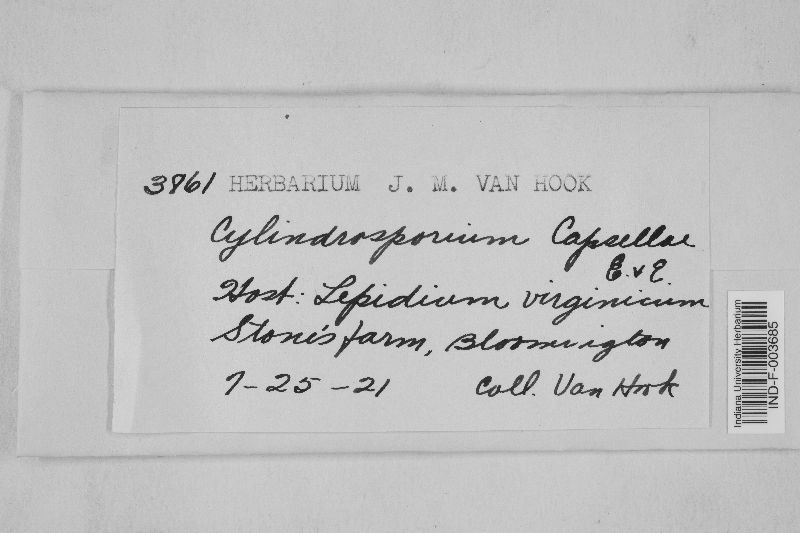 3861 HERBARIUM J. M. VAN HOOK
Cylindrosporium Capsellae
E. & E.
Host: Lepidium virginicum
Stone's farm, Bloomington
7-25-21 Coll. Van Hook
Indiana University Herbarium
IND-F-003685